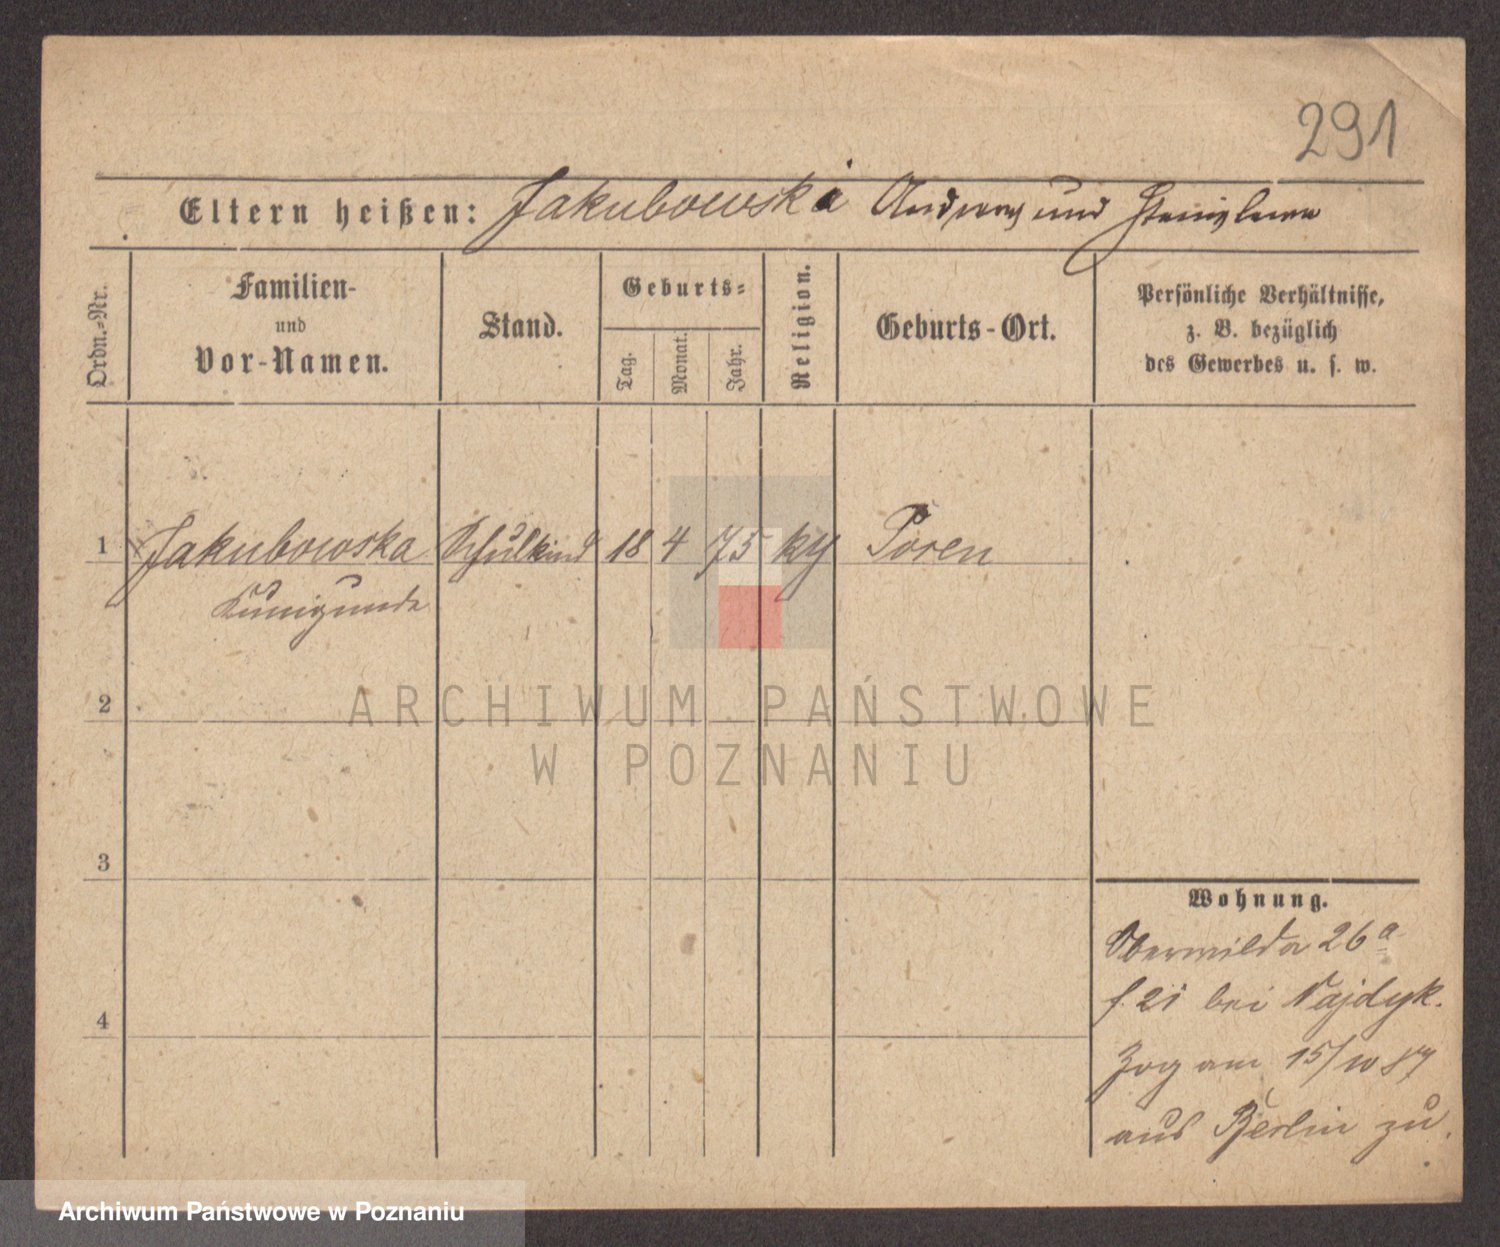 291
Eltern heißen: Jakubowski Andreas und Stanislawa
Ordn.-Nr.
Familien-
und
Vor-Namen.
Stand.
Geburts-
Tag.
Monat.
Jahr.
Religion.
Geburts-Ort.
Persönliche Verhältnisse,
z. B. bezüglich
des Gewerbes u. s. w.
1 Jakubowska Schulkind 18 4 75 Posen
Kunigunde
2
ARCHIWUM PAŃSTWOWE
W POZNANIU
3
4
Wohnung.
Oberwilda 26a
bei Najdyk.
Zog am 15/10 87
aus Berlin zu.
Archiwum Państwowe w Poznaniu